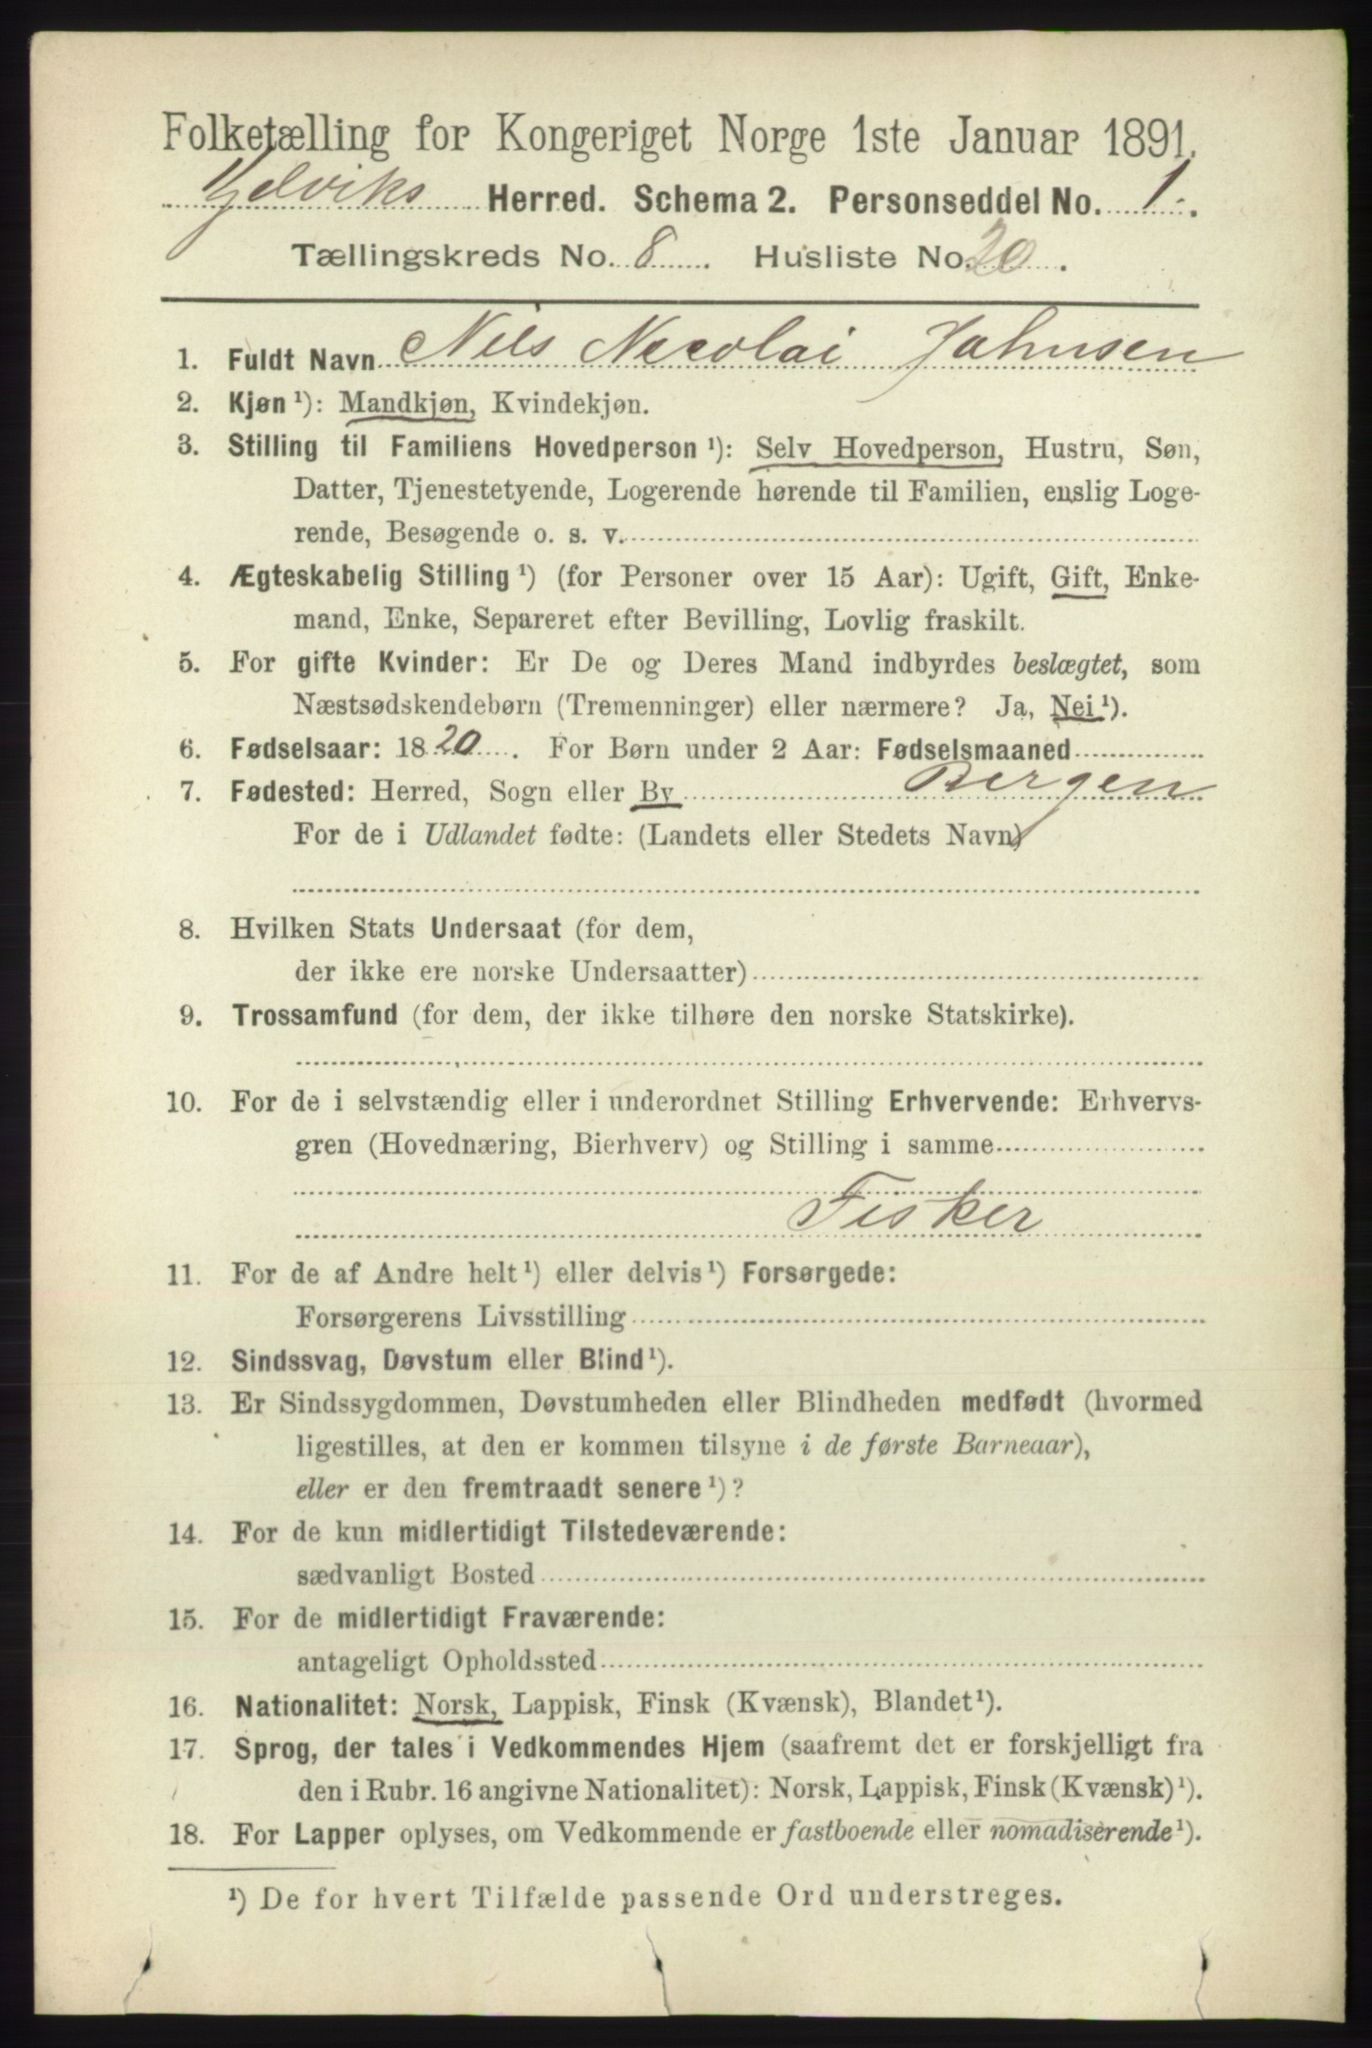 Folketælling for Kongeriget Norge 1ste Januar 1891.
Kjelviks Herred. Schema 2. Personseddel No. 1.
Tællingskreds No. 8. Husliste No. 20.
1. Fuldt Navn Nils Necolai Johnsen
2. Kjøn ¹): Mandkjøn, Kvindekjøn.
3. Stilling til Familiens Hovedperson ¹): Selv Hovedperson, Hustru, Søn,
Datter, Tjenestetyende, Logerende hørende til Familien, enslig Loge-
rende, Besøgende o. s. v.
4. Ægteskabelig Stilling ¹) (for Personer over 15 Aar): Ugift, Gift, Enke-
mand, Enke, Separeret efter Bevilling, Lovlig fraskilt.
5. For gifte Kvinder: Er De og Deres Mand indbyrdes beslægtet, som
Næstsødskendebørn (Tremenninger) eller nærmere? Ja, Nei ¹).
6. Fødselsaar: 1820. For Børn under 2 Aar: Fødselsmaaned
7. Fødested: Herred, Sogn eller By Bergen
For de i Udlandet fødte: (Landets eller Stedets Navn)
8. Hvilken Stats Undersaat (for dem,
der ikke ere norske Undersaatter)
9. Trossamfund (for dem, der ikke tilhøre den norske Statskirke).
10. For de i selvstændig eller i underordnet Stilling Erhvervende: Erhvervs-
gren (Hovednæring, Bierhverv) og Stilling i samme
Fisker
11. For de af Andre helt ¹) eller delvis ¹) Forsørgede:
Forsørgerens Livsstilling
12. Sindssvag, Døvstum eller Blind ¹).
13. Er Sindssygdommen, Døvstumheden eller Blindheden medfødt (hvormed
ligestilles, at den er kommen tilsyne i de første Barneaar),
eller er den fremtraadt senere ¹)?
14. For de kun midlertidigt Tilstedeværende:
sædvanligt Bosted
15. For de midlertidigt Fraværende:
antageligt Opholdssted
16. Nationalitet: Norsk, Lappisk, Finsk (Kvænsk), Blandet ¹).
17. Sprog, der tales i Vedkommendes Hjem (saafremt det er forskjelligt fra
den i Rubr. 16 angivne Nationalitet): Norsk, Lappisk, Finsk (Kvænsk) ¹).
18. For Lapper oplyses, om Vedkommende er fastboende eller nomadiserende ¹).
¹) De for hvert Tilfælde passende Ord understreges.